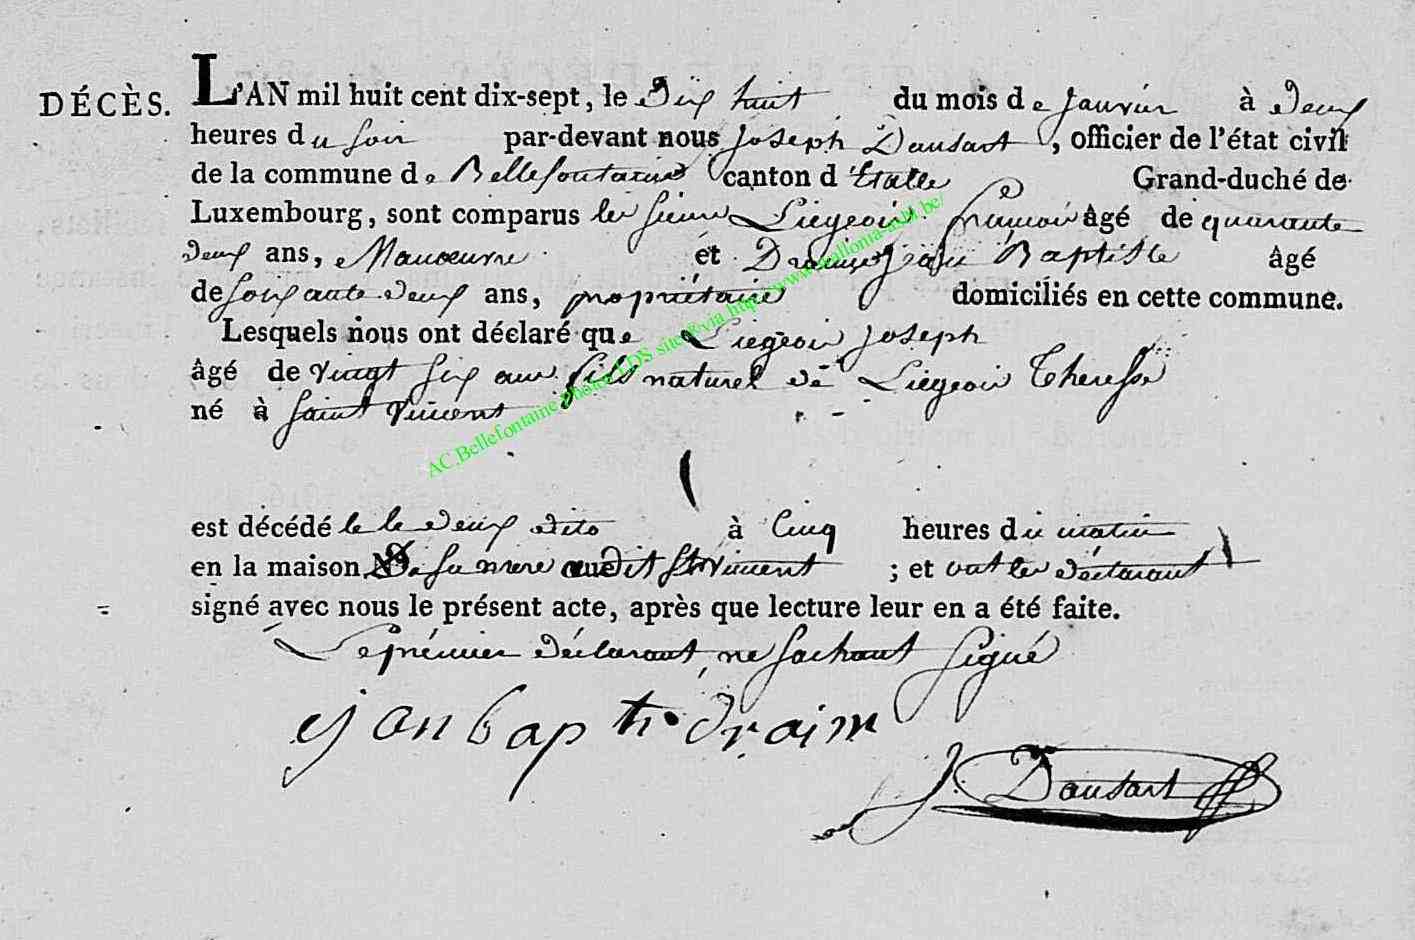 DÉCÈS. L'AN mil huit cent dix-sept, le Dix huit du mois de Janvier à deux
heures du soir par-devant nous Joseph Dansart, officier de l'état civil
de la commune de Bellefontaine canton d'Etalle Grand-duché de
Luxembourg, sont comparus les sieurs Liegeois françois âgé de quarante
deux ans, Manoeuvre et Jean Baptiste âgé
de soixante deux ans, propriétaire domiciliés en cette commune.
Lesquels nous ont déclaré que Liegeois Joseph
âgé de vingt six ans fils naturel de Liegeois Therese
né à Saint Vincent
est décédé le dito à Cinq heures du matin
en la maison De sa mere audit St Vincent ; et ont les déclarant
signé avec nous le présent acte, après que lecture leur en a été faite.
Le prémier déclarant ne sachant signé
jan bapti draim
J. Dansart
AC Bellefontaine Photos LDS site @via http://www.wallonia-asbl.be/